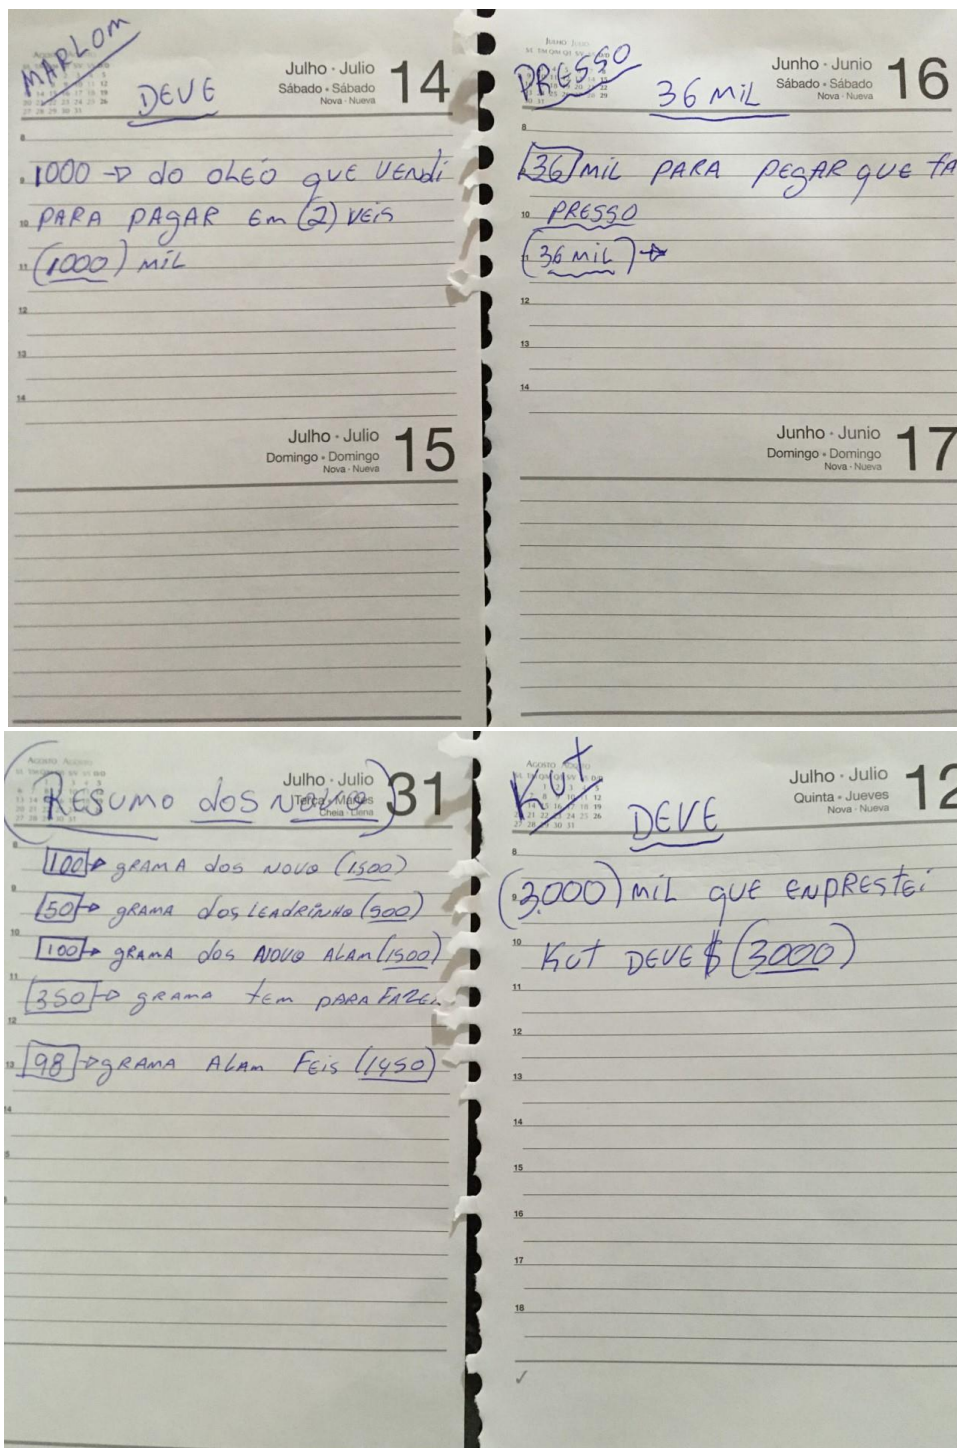 MARLOM
DEVE
Julho - Julio
Sábado - Sábado
Nova - Nueva
14
8
9 1000 → do OLEÓ QUE VENdi
10 PARA PAGAR Em (2) VEIS
11 (1000) MIL
12
13
14
Julho - Julio
Domingo - Domingo
Nova - Nueva
15
PRESSO
36 MIL
Junho - Junio
Sábado - Sábado
Nova - Nueva
16
8
36 MIL PARA PEGAR QUE TA
10 PRESSO
11 (36 MIL) →
12
13
14
Junho - Junio
Domingo - Domingo
Nova - Nueva
17
Agosto Agosto
(RESUMO dOS NOVO)
Julho - Julio
Terça - Martes
Cheia - Llena
31
8
100 → gRAMA dos NOVO (1500)
9
50 → gRAMA dos LEAdRINHO (500)
10
100 → gRAMA dos NOVO ALAM (1500)
11
350 → gRAMA tEm PARA FAZER
12
13 98 → gRAMA ALAM FEIS (1450)
14
Agosto
KUT
DEVE
Julho - Julio
Quinta - Jueves
Nova - Nueva
12
8
9 (3.000) MIL QUE ENPRESTEI
10
KUT DEVE $ (3000)
11
12
13
14
15
16
17
18